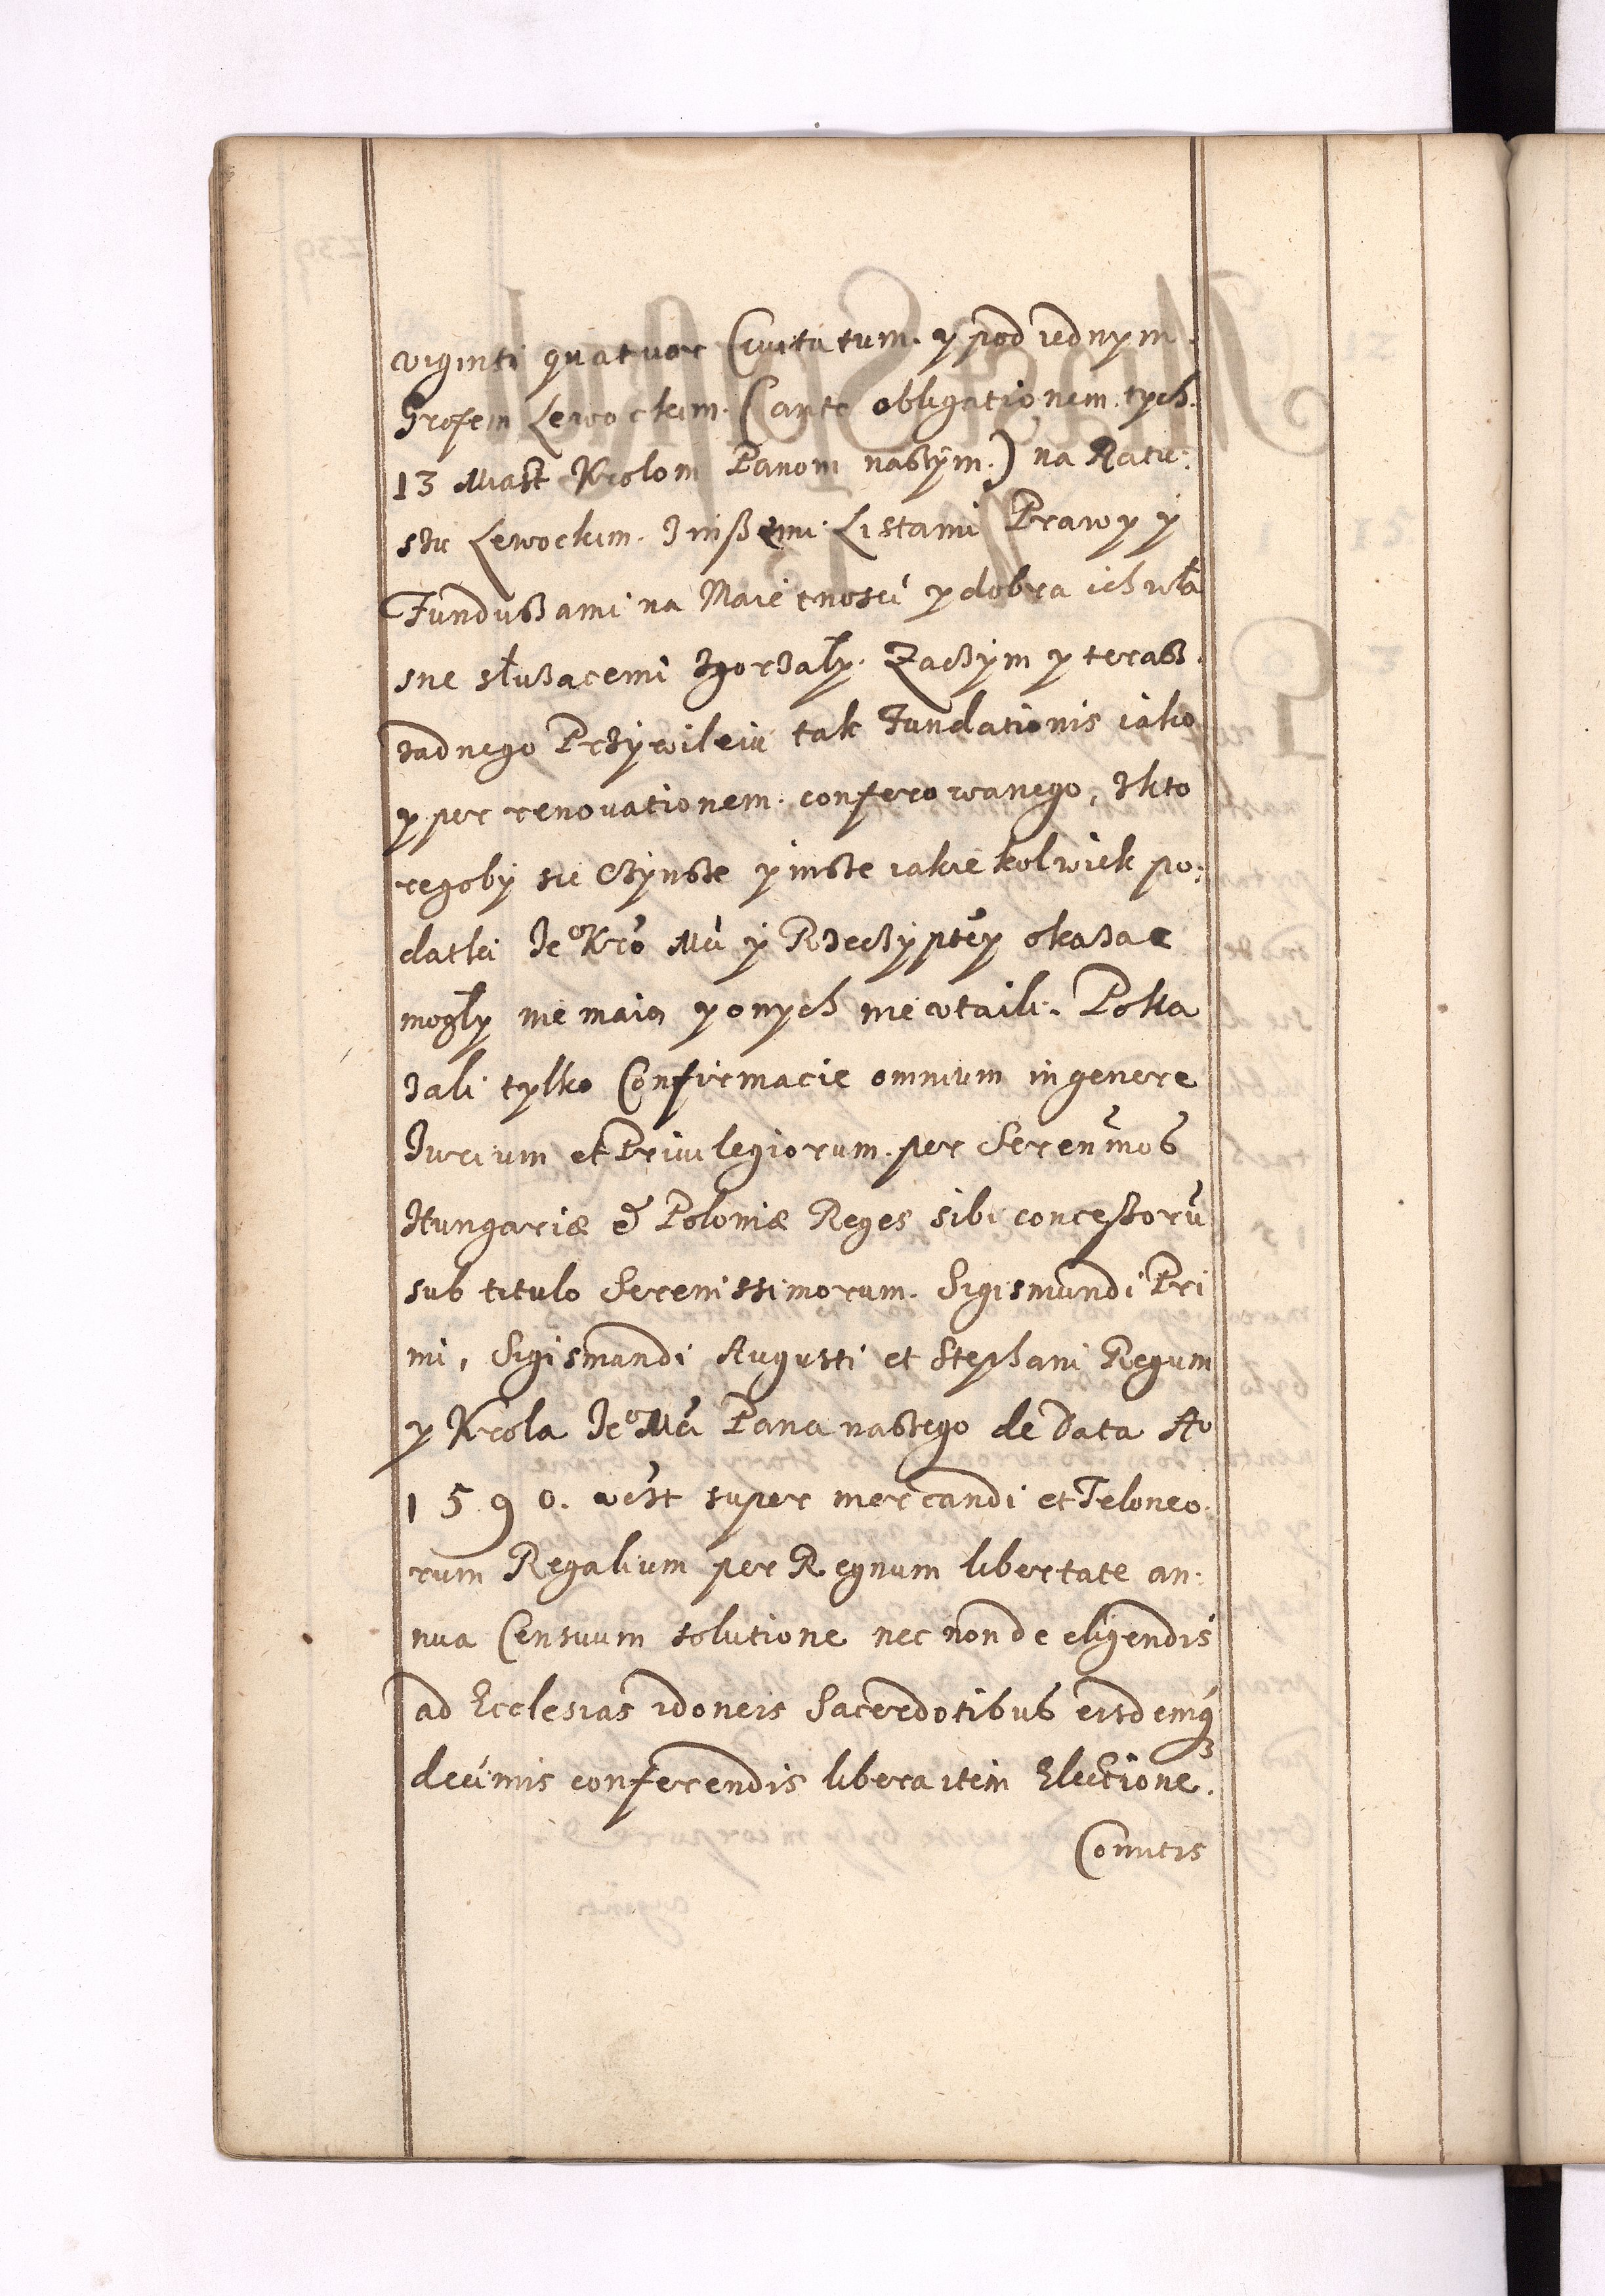 viginti quatuor Civitatum. y pod iednym.
Grofem Lewockim. (ante obligationem tych.
13 Miast Krolom Panom naszym.) na Ratu:
szu Lewockim. Jnßemi Listami Prawy ÿ
Funduszami na Maiętnosci y dobra ich wła
sne słuzacemi Zgorzały. Zaczym y terasz.
zadnego Przÿwileiu tak Fundationis iako
y per renovationem. conferowanego, Zkto
regoby sie Czynsze y insze iakie kolwiek po:
datki Je⁰ Kró Mci ÿ Rzeczÿptéy okazac
mogły nie maia y onych nie utaili. Poka
zali tylko Confirmacie omnium in genere
Jurium et Privilegiorum. per Serenmos
Hungariæ & Poloniæ Reges sibi concessorũ
sub titulo Serenissimorum. Sigismundi Pri
mi, Sigismundi Augusti et Stephani Regum
y Krola Je⁰ Mci Pana naszego de Data A⁰
1590. vest super mercandi et Teloneo:
rum Regalium per Regnum libertate an:
nua Censuum solutione nec non de eligendis
ad Ecclesias idoneis Sacerdotibus eisdemq3
decimis conferendis libera item Electione.
Comitis